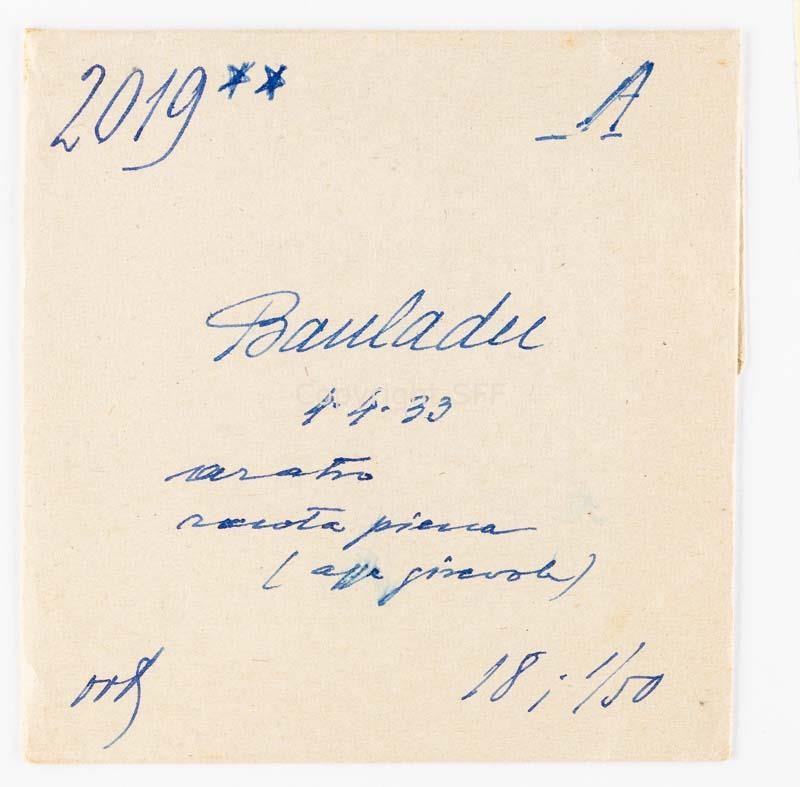 2019** A
Bauladu
Copyright SFF
4.4.33
aratro
ruota piena
(asse girevole)
orth
18 ; 1/50